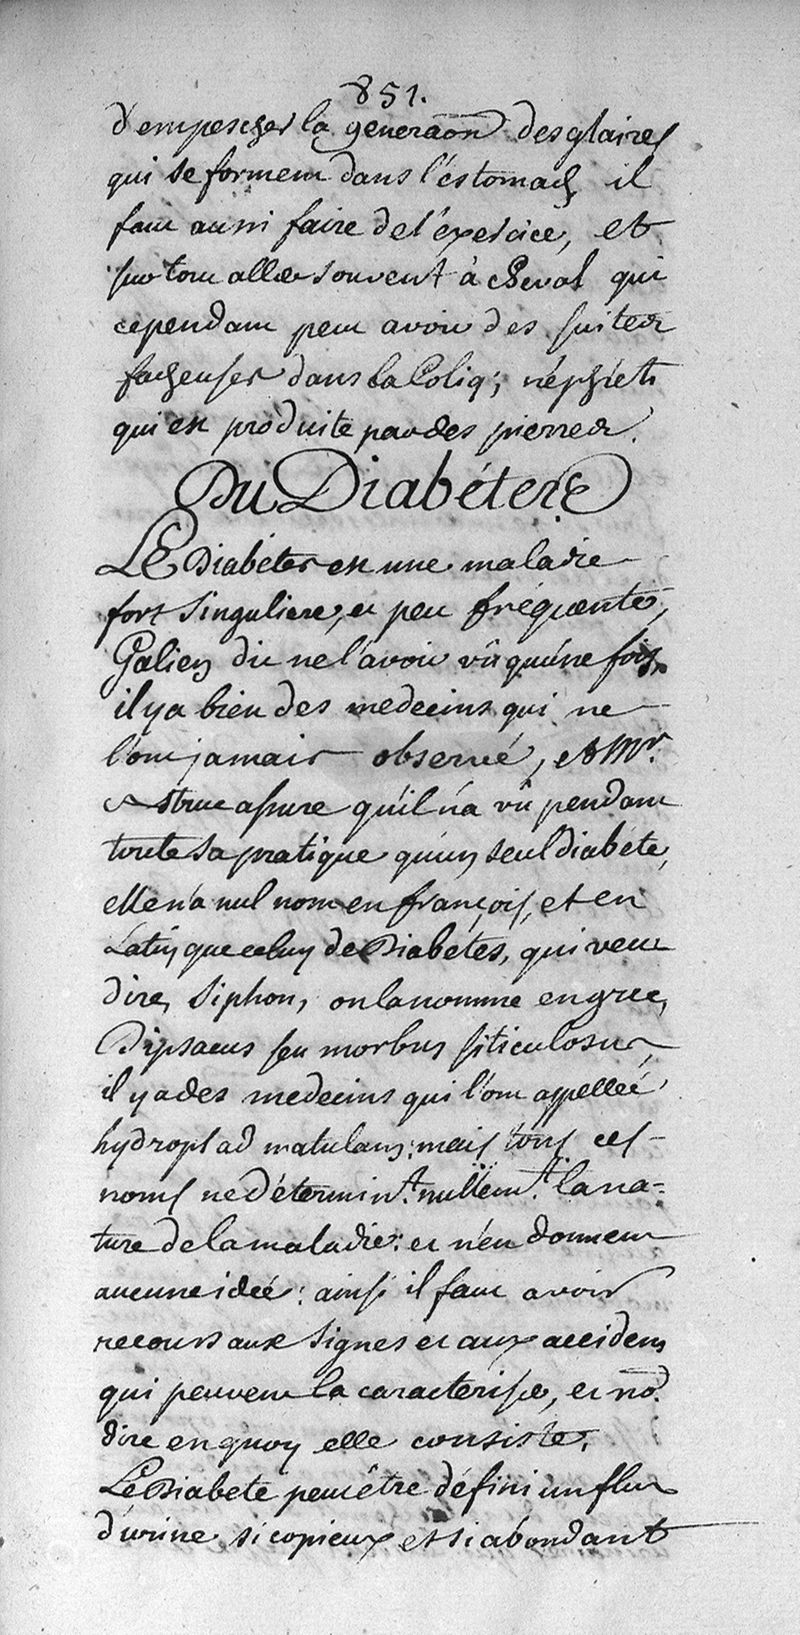 851.
d'empescher la generaõn des glaires
qui se forment dans l'éstomach il
faut aussi faire de l'éxercice, et
sur tout aller souvent à cheval qui
cependant peut avoir des suites
facheuses dans la Coliq; néphréti
qui est produite par des pierres.
Du Diabétes
LE Diabétes est une maladie
fort singuliere, et peu fréquente,
Galien dit ne l'avoir vû qu'úne fois,
il y a bien des medecins qui ne
l'ont jamais observé, et Mr.
Astruc assure qu'il n'a vû pendant
toute sa pratique qu'un seul diabéte,
elle n'a nul nom en françois, et en
Latin que celuy de Diabétes, qui veut
dire, siphon, on la nomme en grec,
Dipsacus seu morbus siticulosus,
il y a des medecins qui l'ont appelleé
hydrops ad matulam: mais tous ces
noms ne détermint. nullemt. la na=
ture de la maladie: et n'en donnent
aucune idéé: ainsi il faut avoir
recours aux signes et aux accidens
qui peuvent la caracteriser, et nõ.
dire en quoy elle consiste.
Le Diabete peut être défini un flux
d'urine si copieux et si abondant